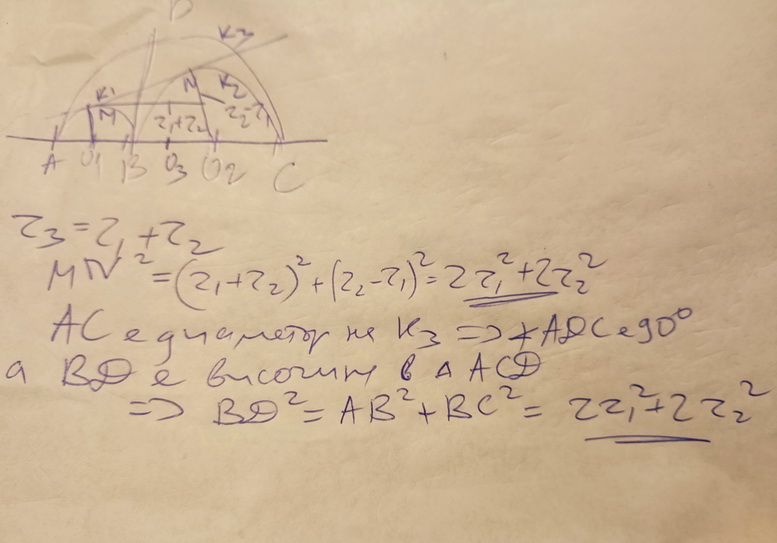 D
K3
K1
N
K2
M
r1+r2
r2-r1
A O1 B O3 O2 C
r3 = r1 + r2
MN² = (r1+r2)² + (r2-r1)² = 2r1² + 2r2²
AC е диаметър на K3 => ∢ADC е 90°
а BD е височина в △ ACD
=> BD² = AB² + BC² = 2r1² + 2r2²